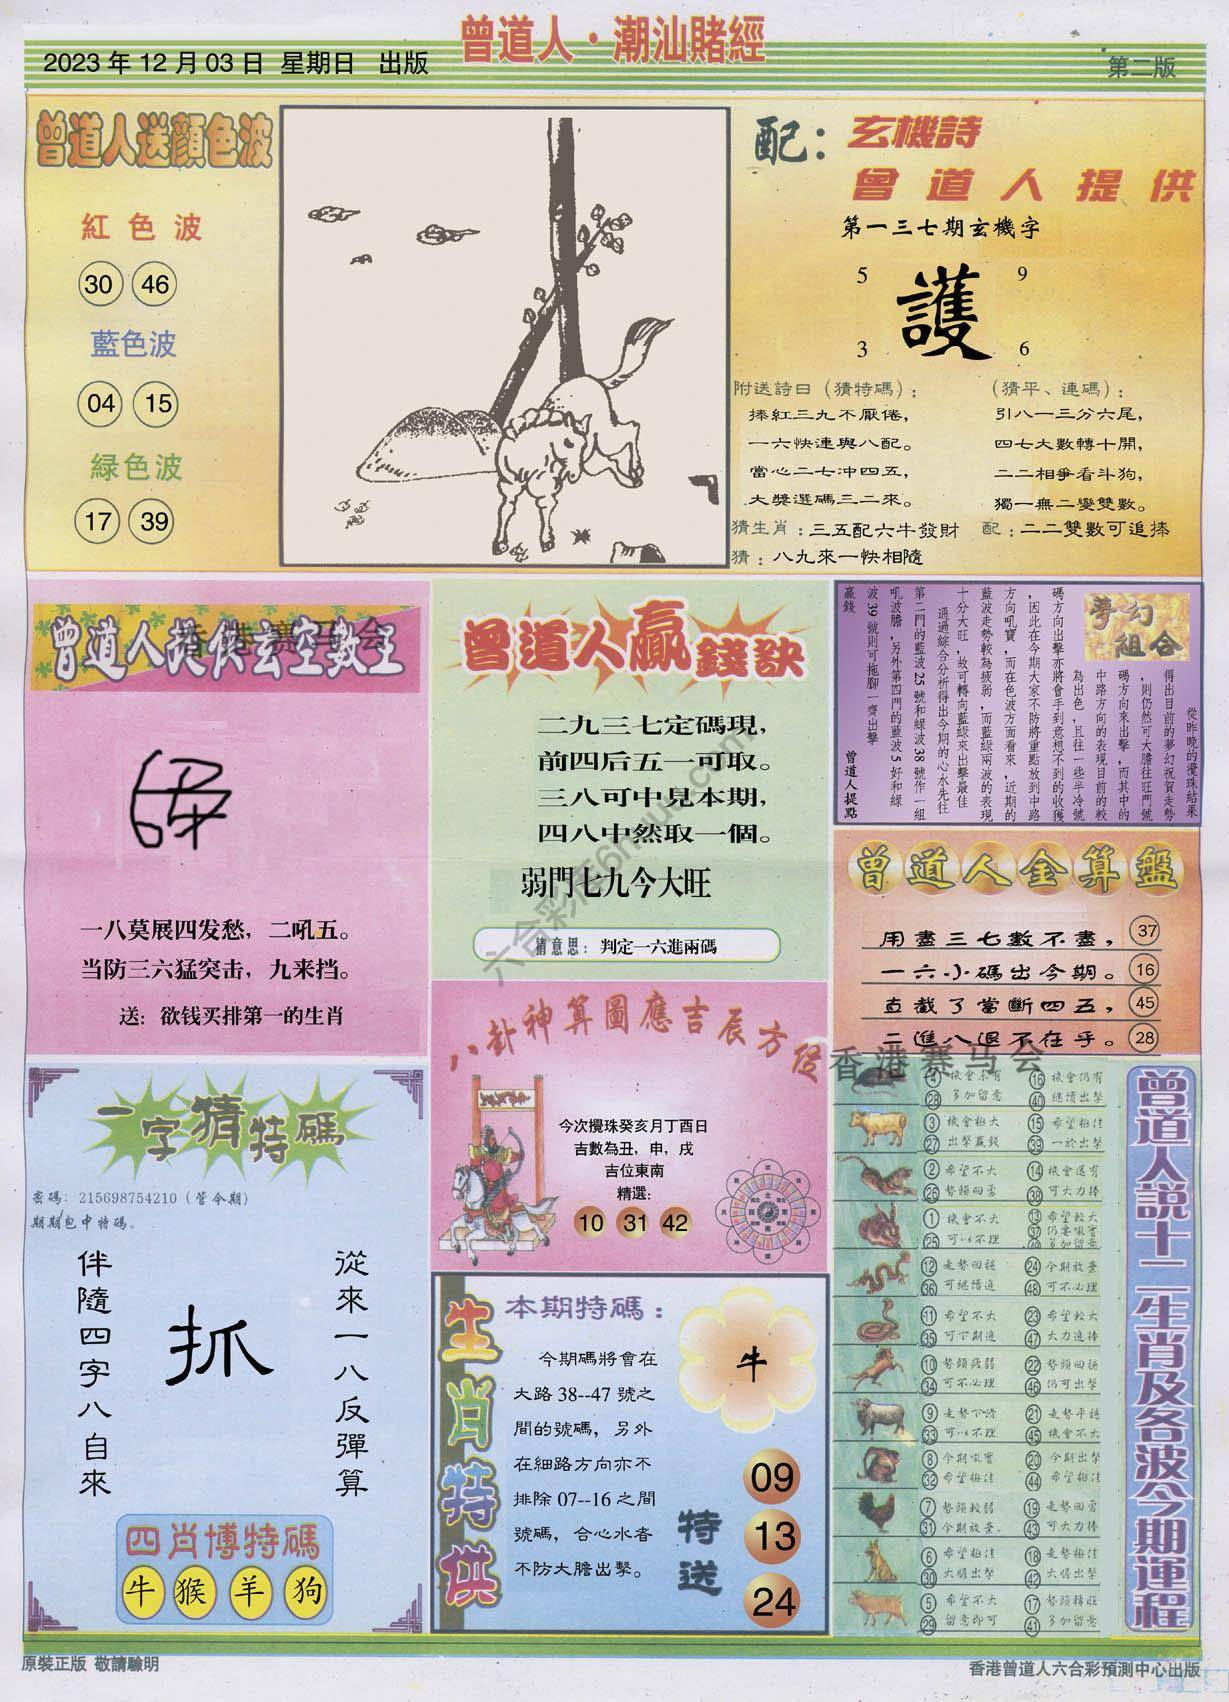 曾道人·潮汕賭經
2023 年 12 月 03 日 星期日 出版
第二版
曾道人送顏色波
紅色波
30 46
藍色波
04 15
緑色波
17 39
配：玄機詩
曾道人提供
第一三七期玄機字
5 9
護
3 6
附送詩曰（猜特碼）：
捧紅三九不厭倦，
一六快連與八配。
當心二七冲四五，
大獎選碼三二來。
（猜平、連碼）：
引八一三分六尾，
四七大數轉十開，
二二相爭看斗狗，
獨一無二變雙數。
猜生肖：三五配六牛發財
配：二二雙數可追捧
猜：八九來一快相隨
曾道人提供玄空數王
香港赛马会
一八莫展四发愁，二吼五。
当防三六猛突击，九来挡。
送：欲钱买排第一的生肖
曾道人贏錢訣
二九三七定碼現，
前四后五一可取。
三八可中見本期，
四八中然取一個。
弱門七九今大旺
猜意思：判定一六進兩碼
夢幻組合
從昨晚的攪珠結果
得出目前的夢幻祝賀走勢
，則仍然可大膽往旺門號
碼方向來出擊，而其中的
中路方向的表現目前的較
為出色，且往一些半冷號
碼方向出擊亦將會手到意想不到的收獲
，因此在今期大家不防將重點放到中路
方向吼寶，而在色波方面看來，近期的
藍波走勢較為疲弱，而藍綠兩波的表現
十分大旺，故可轉向藍綠來出擊最佳
通過綜合分析得出今期的心水先往
第二門的藍波 25 號和綠波 38 號作一組
吼波膽，另外第四門的藍波 5 好和綠
波 39 號則可拖腳一齊出擊
贏錢
曾道人提點
曾道人金算盤
用盡三七數不盡， 37
一六小碼出今期。 16
直截了當斷四五， 45
二進八退不在乎。 28
八卦神算圖應吉辰方位
香港赛马会
今次攪珠癸亥月丁酉日
吉數為丑，申，戌
吉位東南
精選:
10 31 42
一字猜特碼
密碼：215698754210（管令期）
期期包中特碼。
從來一八反彈算
抓
伴隨四字八自來
四肖博特碼
牛 猴 羊 狗
生肖特供
本期特碼：
牛
今期碼將會在
大路 38--47 號之
間的號碼，另外
在細路方向亦不
排除 07--16 之間
號碼，合心水者
不防大膽出擊。
特送
09
13
24
曾道人説十二生肖及各波今期運程
4 機會未有 16 機會仍有
28 多加留意 40 继續出擊
3 機會極大 15 希望極佳
27 出擊贏錢 39 一於出擊
2 希望不大 14 機會還有
26 勢頭回勇 38 可大力捧
1 機會不大 13 希望較大
37 仍要吼實
25 可以不理 49 多加留意
12 走勢回穩 24 今期放棄
36 可繼續追 48 可不必理
11 希望不大 23 希望較大
35 可下期追 47 大力追捧
10 勢頭疲弱 22 勢頭回穩
34 可不必理 46 仍可出擊
9 走勢下滑 21 走勢平穩
33 可以不理 45 機會不大
8 今期吼實 20 今期出擊
32 希望極佳 44 希望極佳
7 勢頭較弱 19 走勢回勇
31 今期放棄. 43 可大力捧
6 希望極佳 18 走勢極佳
30 大膽出擊 42 大膽出擊
5 希望不大 17 勢頭轉旺
29 留意即可 41 多加留意
原裝正版 敬請驗明
香港曾道人六合彩預測中心出版